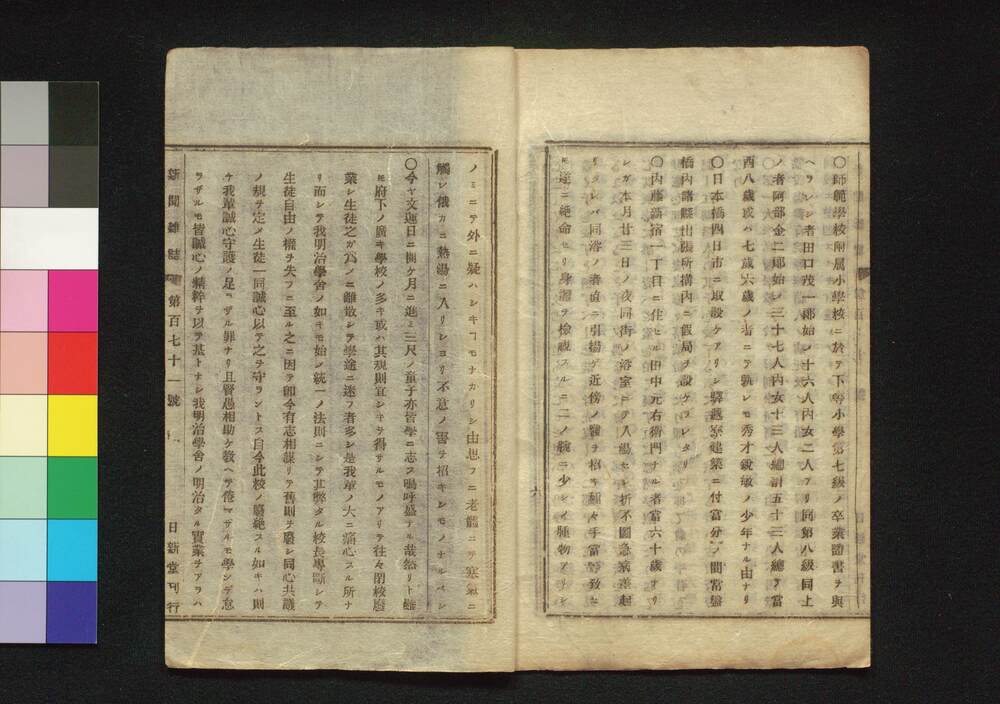 〇師範學校附屬小學校ニ於テ下等小學第七級ノ卒業證書ヲ與
ヘラレシ者田口茂一郎始メ十六人内女二人アリ同第八級同上
ノ者阿部金二郎始メ三十七人内女十三人總計五十三人總テ當
酉八歳或ハ七歳六歳ノ者ニテ孰レモ秀才鋭敏ノ少年ナル由ナリ
〇日本橋四日市ニ取設ケアリシ驛遞寮建築ニ付當分ノ間常盤
橋内諸縣出張所構内ニ假局ヲ設ケラレタリ
〇内藤新宿一丁目ニ住セル田中元右衛門ナル者當六十歳ナリ
シガ本月廿三日ノ夜同街ノ浴室ニテ入湯セシ折不圖急病差起
リタレバ同浴ノ者直ニ引揚ゲ近傍ノ醫ヲ招キ種々手當等致セ
ㇳモ遂ニ絶命セリ身體ヲ檢視スルニ二ノ腕ニ少シノ腫物アリシ
六
ノミニテ外ニ疑ハシキヿモナカリシ由思フニ老體ニテ寒氣ニ
觸レ俄カニ熱湯ニ入リシヨリ不意ノ害ヲ招キシモノナルベシ
〇今ヤ文運日ニ開ケ月ニ進ミ三尺ノ童子亦皆學ニ志ス嗚呼盛ナル哉然リト雖
ㇳモ府下ノ廣キ學校ノ多キ或ハ其規則宜シキヲ得ザルモノアリテ往々閉校廢
業シ生徒之ガ爲メニ離散シテ學途ニ迷フ者多シ是我輩ノ大ニ痛心スル所ナ
リ而シテ我明治學舍ノ如キモ始メ統一ノ法則ニシテ其弊タル校長專斷シテ
生徒自由ノ權ヲ失フニ至ル之ニ因テ即今有志相謀リテ舊則ヲ廢シ同心共議
ノ規ヲ定メ生徒一同誠心以テ之ヲ守ラントス自今此校ノ廢絶スル如キハ則
チ我輩誠心守護ノ足ラザル罪ナリ且賢愚相助ケ教ヘテ倦マザルモ學ンデ怠
ラザルモ皆誠心ノ精粹ヲ以テ基トナシ我明治學舍ノ明治タル實業ヲアラハ
新聞雜誌 第百七十一號 日新堂刊行